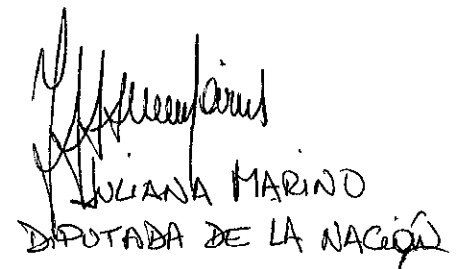 JULIANA MARINO
DIPUTADA DE LA NACIÓN